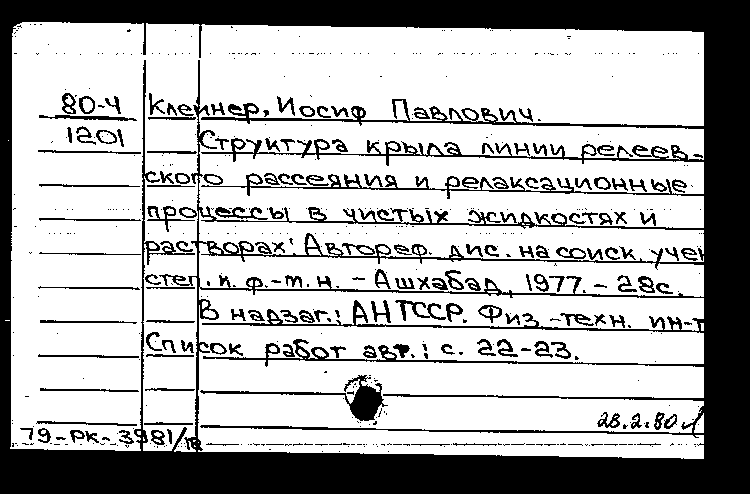 80-4 Клейнер, Иосиф Павлович.
1201 Структура крыла линии релеев-
ского рассеяния и релаксационные
процессы в чистых жидкостях и
растворах: Автореф. дис. на соиск. учен
степ. к. ф.-м. н. - Ашхабад, 1977. - 28с.
В надзаг.: АН ТССР. Физ.-техн. ин-т
Список работ авт.: с. 22-23.
28.2.80
79-РК-3981/